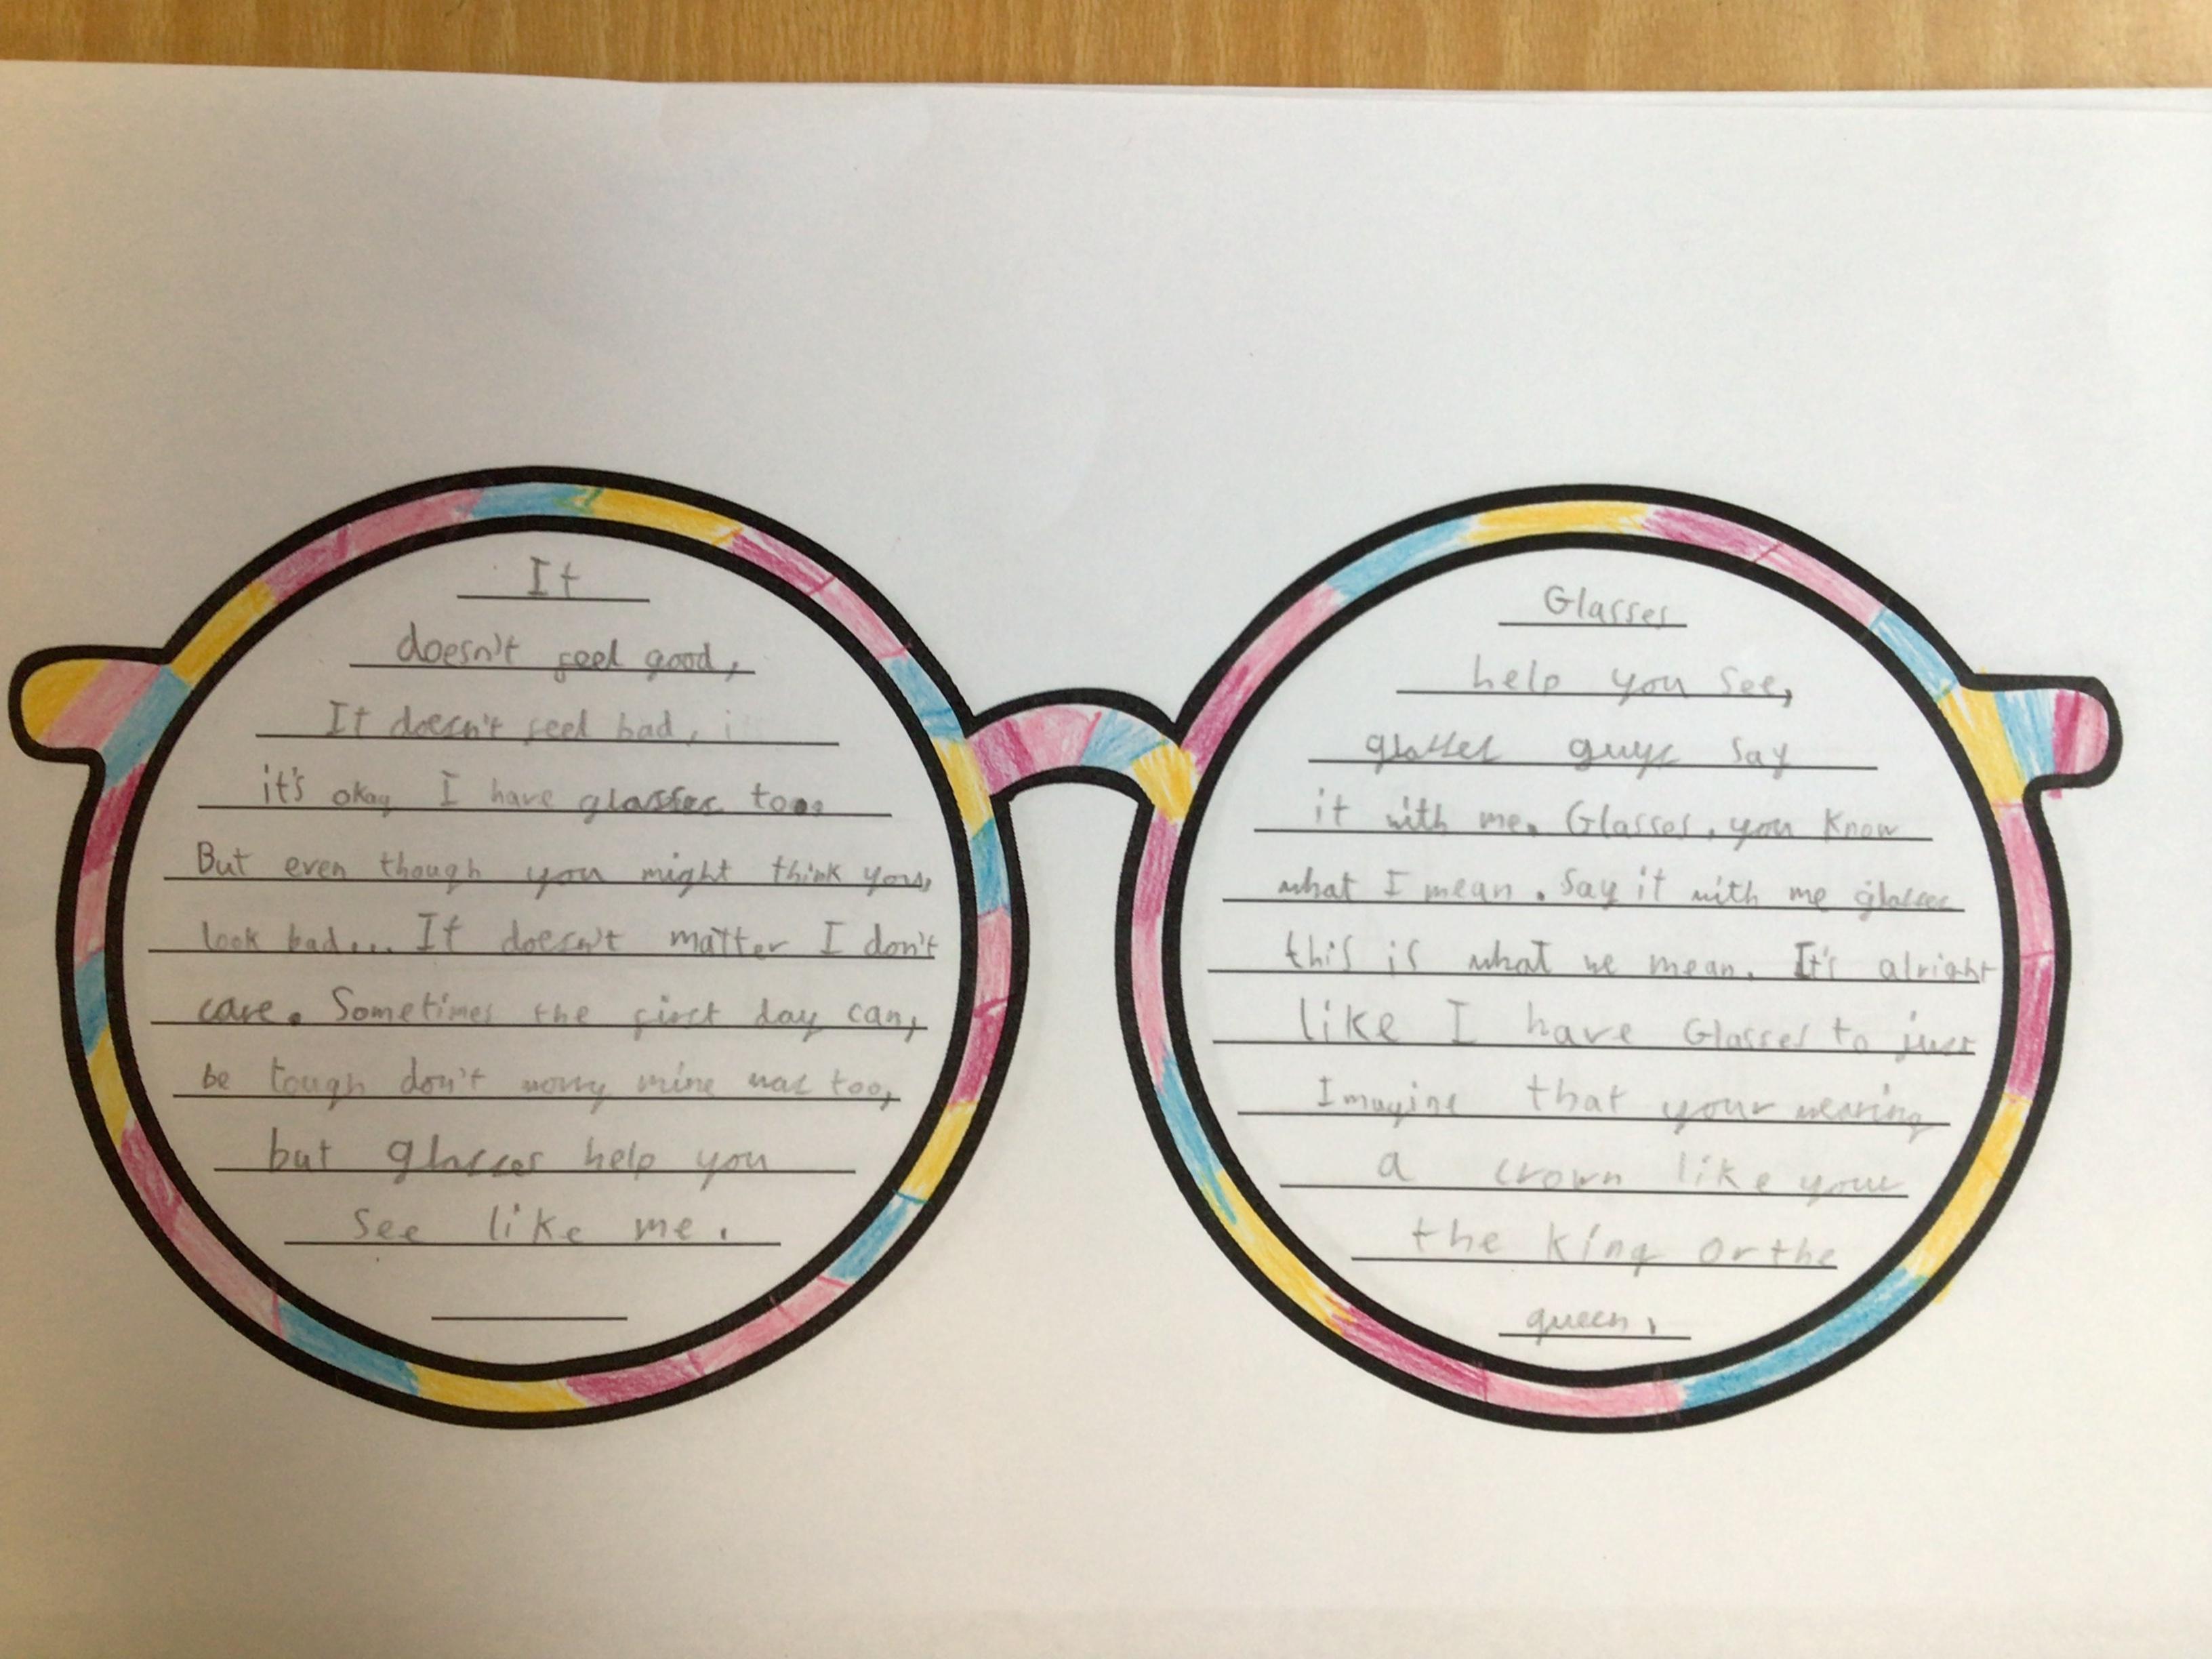 It
doesn't feel good,
It doesn't feel bad, i
it's okay I have glasses too.
But even though you might think you,
look bad... It doesn't matter I don't
care. Sometimes the first day can,
be tough don't worry mine was too,
but glasses help you
see like me.
Glasses
help you see,
glasses guys say
it with me. Glasses, you know
what I mean. Say it with me glasses
this is what we mean. It's alright
like I have Glasses to just
Imagine that your wearing
a crown like your
the king or the
queen.